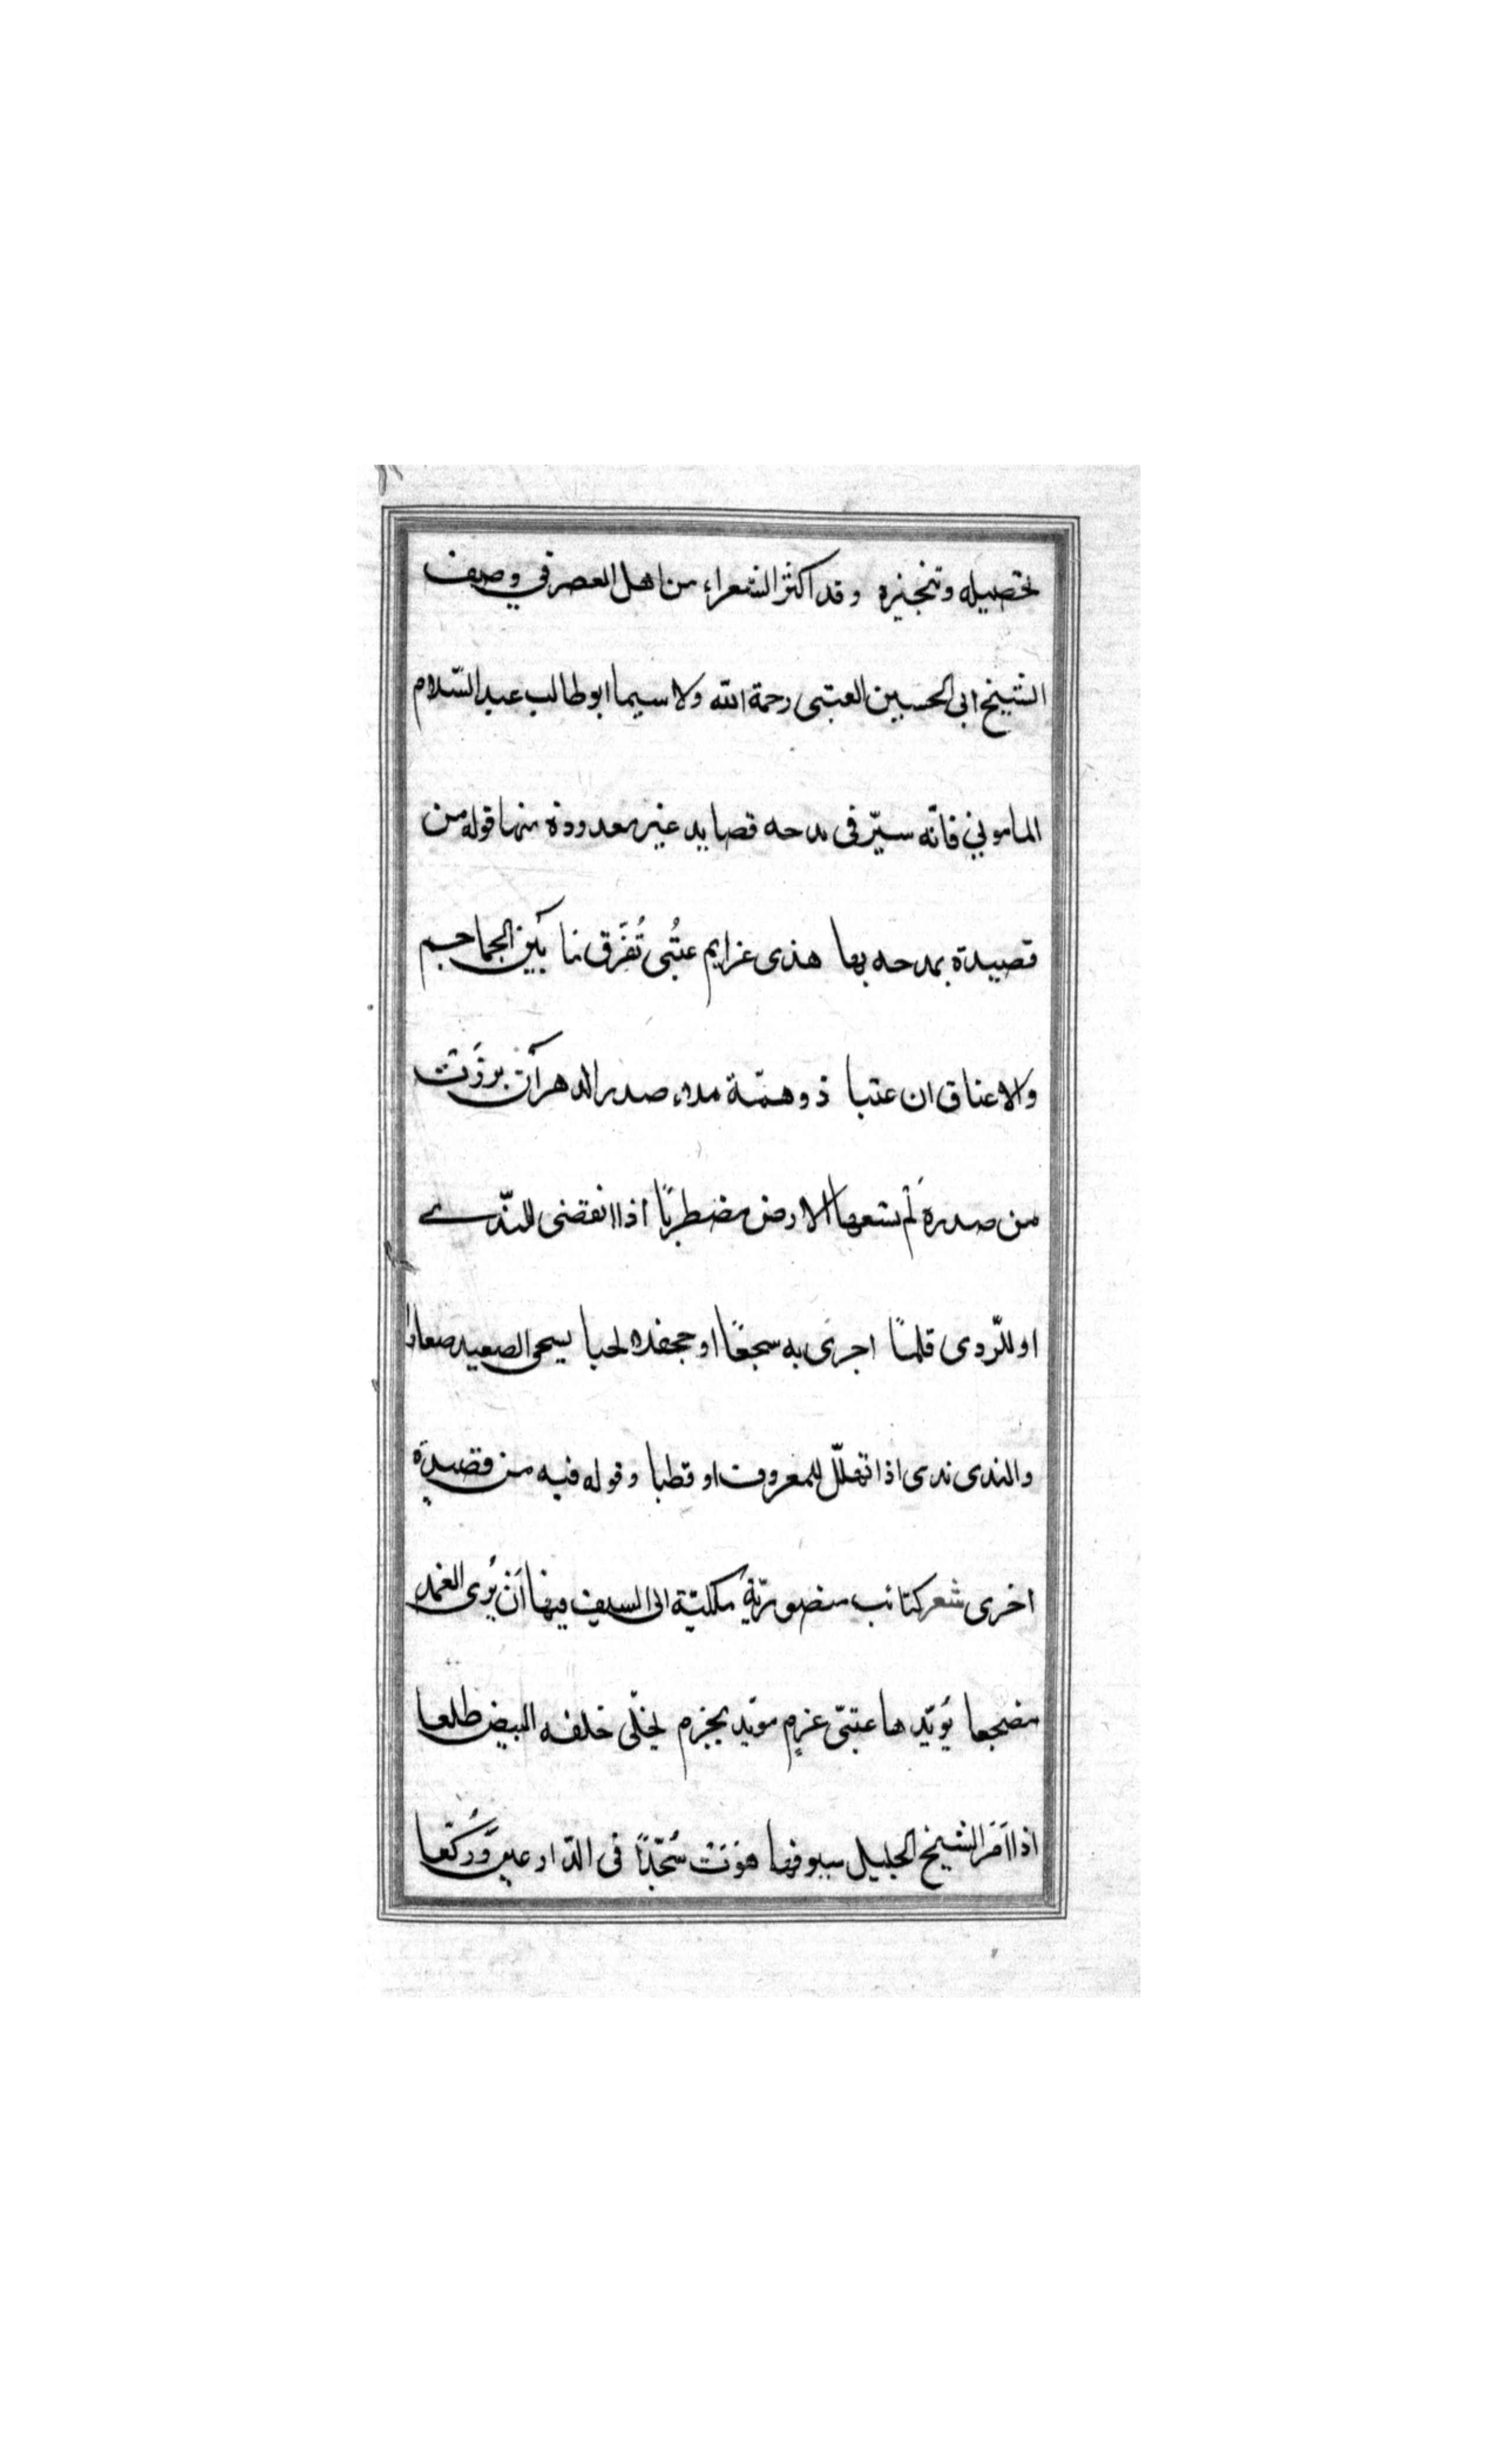 تحصيله وتنجيزه وقد اكثر الشعراء من اهل العصر في وصف
الشيخ ابى الحسين العتبى رحمة الله ولا سيما ابو طالب عبد السّلام
المامونى فانّه سيّر فى مدحه قصايد غير معدودة منها قوله من
قصيدة يمدحه بها هذى عزايم عتُبى تُفَرّق ما بَين الجماجم
والاعناق ان عتبا ذو همّة ملاء صدر الدهر أن برزَت
من صدره لَم يسعها الارض مضطربًا اذا انتضى للنّدى
او للرّدى قلمًا اجرى به سجعًا او جحفلا لجبا يسحى الصعيد صعادا
والندى ندى اذا تهلّل للمعروف او قطبا وقوله فيه من قصيدة
اخرى شعر كتائب منصوريّةٍ ملكيّة ابى السيف فيها أن يُرى الغمد
مضجعا يُويّدها عتبىّ عزمٍ مويّد بحزم يخلّى خلفه البيض ظلعا
اذا اَمَر الشيخ الجليل سيوفها هَوَتْ سُجّدًا فى الدّارعين وَرُكّعا